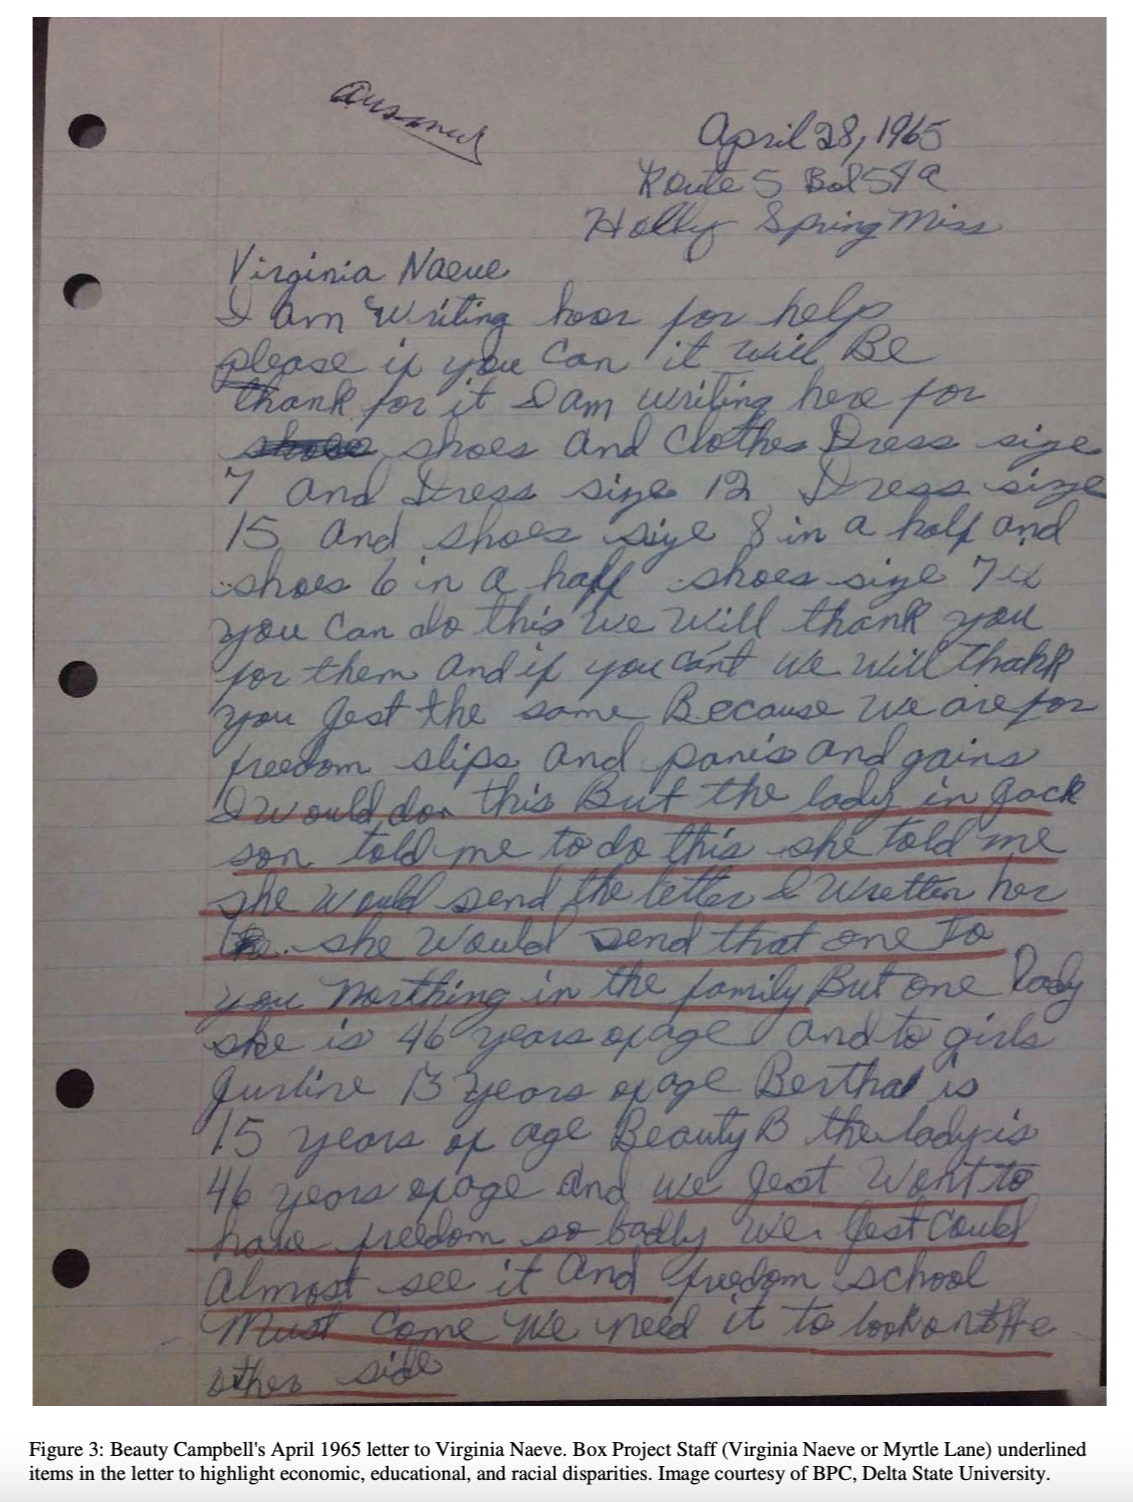 April 28, 1965
Route 5 Box 54 a
Holly Spring Miss
Virginia Naeve
I am writing hear for help
please if you can it will Be
thank for it I am writing here for
shoes and clothes Dress size
7 and Dress size 12 Dress size
15 and shoes size 8 in a half and
shoes 6 in a haff shoes size 7 if
you can do this we will thank you
for them and if you cánt we will thank
you gest the same Because we are for
freedom slips and panis and gains
I would don this But the lady in Jack
son told me to do this she told me
she would send the letter I wretten her
she would send that one To
you Northing in the family But one lady
she is 46 years of age and to girls
Jurline 13 years of age Bertha is
15 years of age Beauty B the lady is
46 years of age and we gest want to
have freedom so badly we gest could
almost see it and freedom school
Must come we need it to look on the
other side
Figure 3: Beauty Campbell's April 1965 letter to Virginia Naeve. Box Project Staff (Virginia Naeve or Myrtle Lane) underlined
items in the letter to highlight economic, educational, and racial disparities. Image courtesy of BPC, Delta State University.